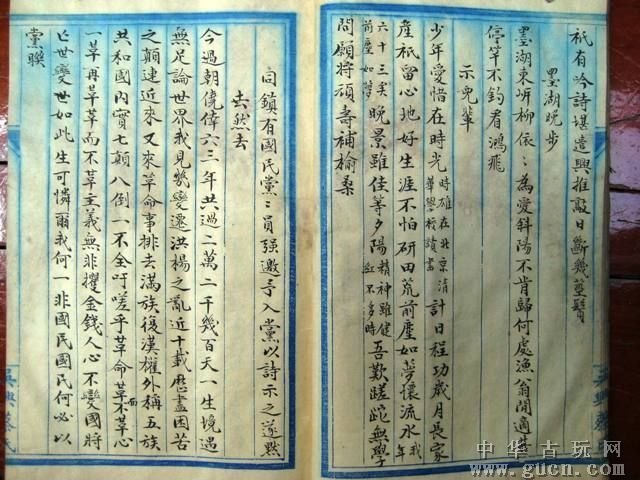 祇有吟詩堪遣興推敲日斷幾莖鬚
墨湖晚步
墨湖東畔柳依〻為愛斜陽不肯歸何處漁翁閒適甚
停竿不釣看鴻飛
示兒輩
少年愛惜在時光時雄在北京清華學校讀書計日程功歲月長家
產祇留心地好生涯不怕研田荒前塵如夢懷流水我年
六十三矣前塵如夢晚景雖佳等夕陽精神雖健紅不多時吾歎蹉跎無學
問願將頑壽補榆桑
同鎮有國民黨〻員强邀予入黨以詩示之遂默
去然去
今過朝僥倖六三年共過二萬二千幾百天一生境遇
無足論世界我見幾變遷洪楊之亂近十載歷盡困苦
之顛連近來又來革命事排去滿族復漢權外稱五族
共和國內實七顛八倒一不全吁嗟乎革命革不革心
一草再草草而不革主義無非攫金錢人心不變國將
亡世變世如此生可憐爾我何一非國民國民何必以
黨聯
吳興蔡氏
中华古玩网
www.gucn.com